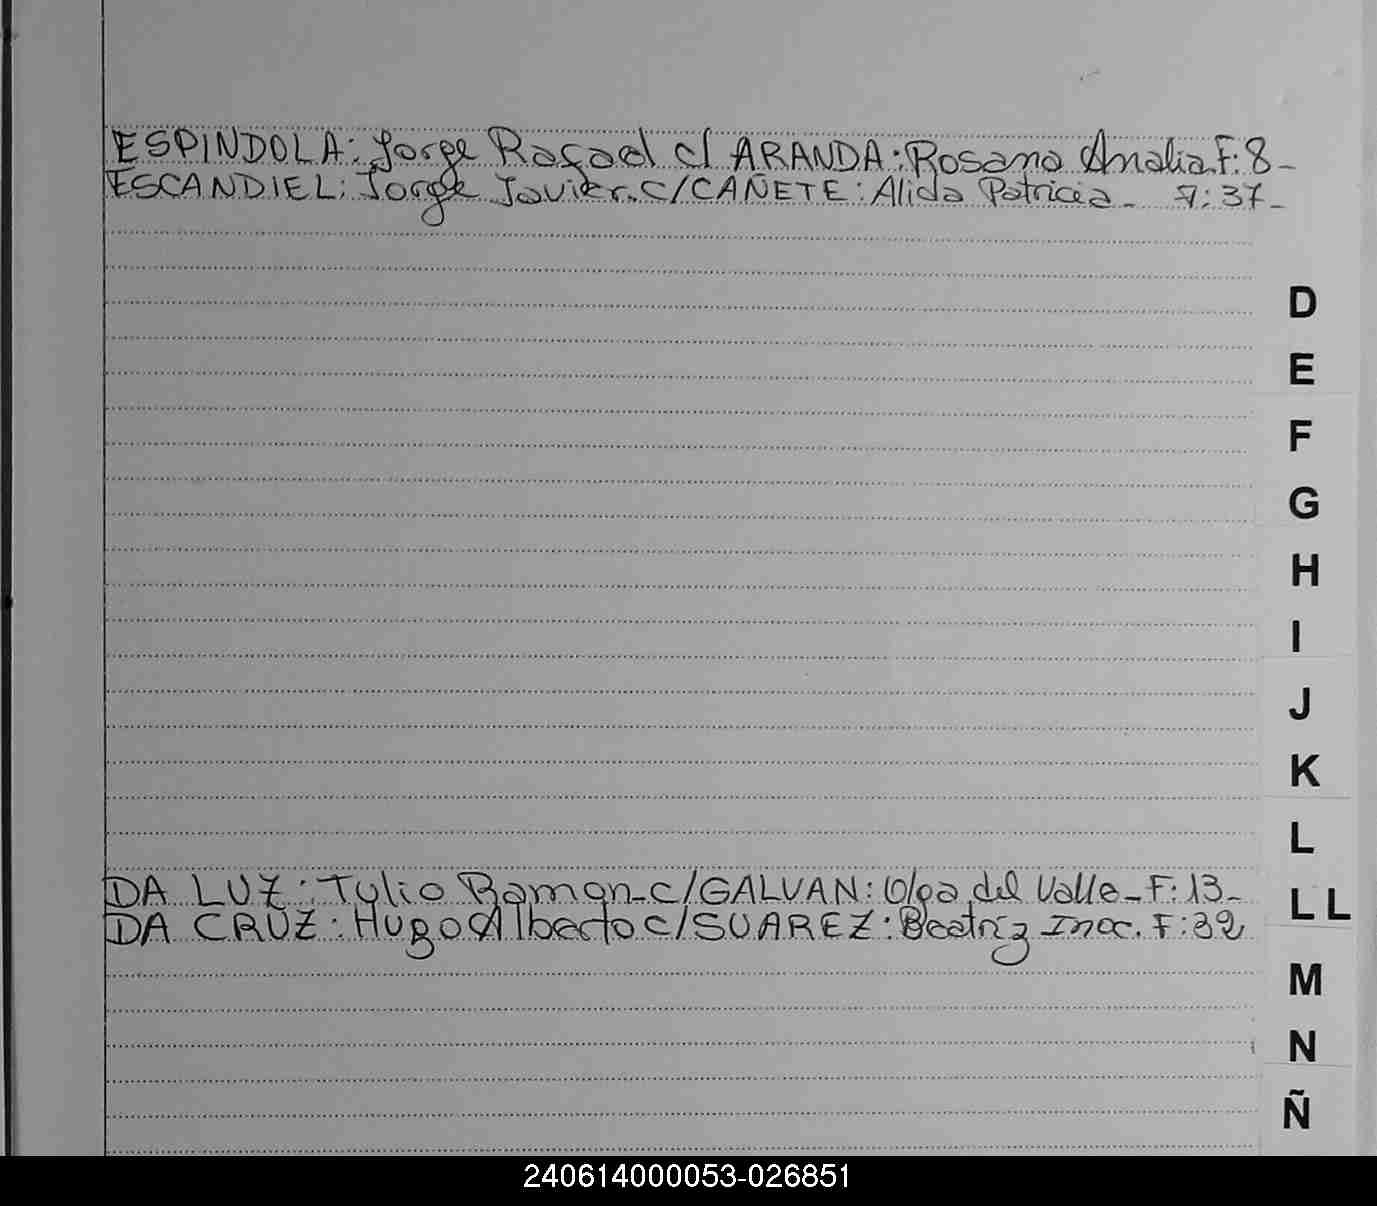 ESPINDOLA: Jorge Rafael c/ ARANDA: Rosana Analia. F: 8-
ESCANDIEL: Jorge Javier. c/ CAÑETE: Alida Patricia- F: 37-
D
E
F
G
H
I
J
K
L
DA LUZ: Tulio Ramon- c/ GALVAN: Olga del Valle- F: 13-
LL
DA CRUZ: Hugo Alberto c/ SUAREZ: Beatriz Inoc. F: 32
M
N
Ñ
240614000053-026851